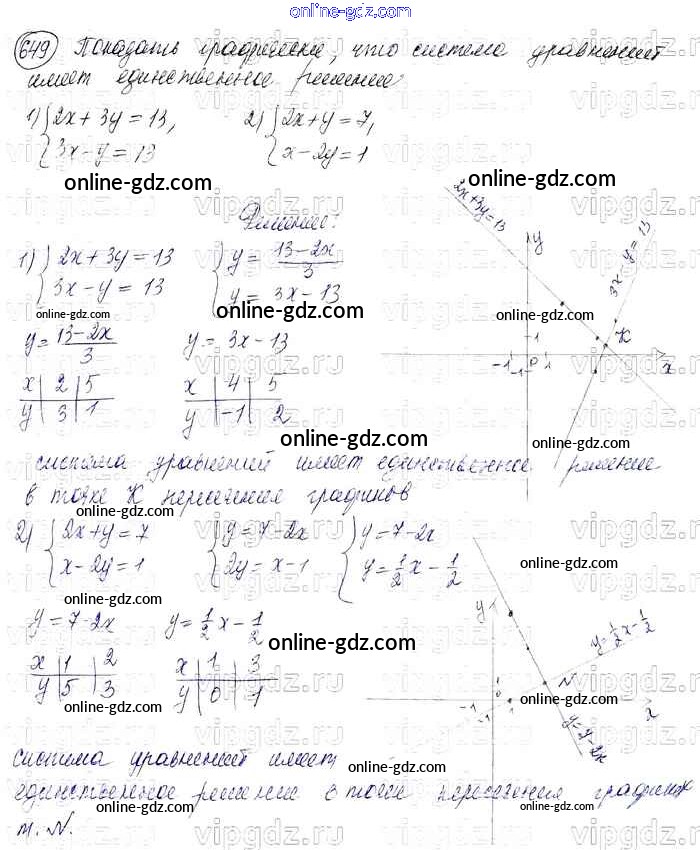 online-gdz.com
649 Показать графически, что система уравнений
имеет единственное решение
1) { 2x + 3y = 13,
3x - y = 13
2) { 2x + y = 7,
x - 2y = 1
online-gdz.com
online-gdz.com
Решение:
1) { 2x + 3y = 13
3x - y = 13
{ y = (13 - 2x)/3
y = 3x - 13
online-gdz.com
2x + 3y = 13
3x - y = 13
y
K
x
-1 0 1
1
-1
online-gdz.com
y = (13 - 2x)/3
x | 2 | 5
y | 3 | 1
y = 3x - 13
x | 4 | 5
y | -1 | 2
online-gdz.com
online-gdz.com
система уравнений имеет единственное решение
в точке K пересечения графиков
online-gdz.com
2) { 2x + y = 7
x - 2y = 1
{ y = 7 - 2x
2y = x - 1
{ y = 7 - 2x
y = 1/2 x - 1/2
online-gdz.com
online-gdz.com
y = 7 - 2x
x | 1 | 2
y | 5 | 3
y = 1/2 x - 1/2
x | 1 | 3
y | 0 | 1
online-gdz.com
online-gdz.com
y
y = 1/2 x - 1/2
N
x
-1 0 1
-1
online-gdz.com
система уравнений имеет
единственное решение в точке пересечения графиков
т. N.
online-gdz.com
online-gdz.com
online-gdz.com
vipgdz.ru